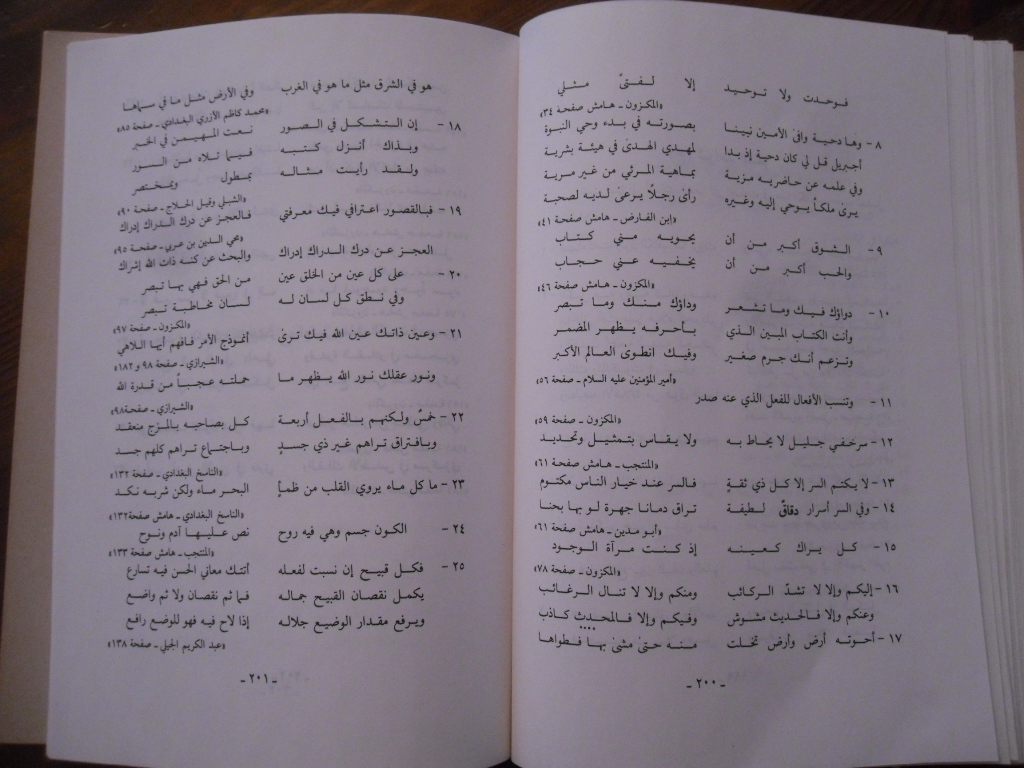 فوحدت ولا توحيد إلا لفتىً مثلي
«المكزون ـ هامش صفحة ٣٤»
٨ - وها دحية وافى الأمين نبينا بصورته في بدء وحي النبوة
أجبريل قل لي كان دحية إذ بدا لمهدي الهدى في هيئة بشرية
وفي علمه عن حاضريه مزية بماهية المرئي من غير مرية
يرى ملكاً يوحي إليه وغيره رأى رجلاً يرعى لديه لصحبة
«إبن الفارض ـ هامش صفحة ٤١»
٩ - الشوق أكبر من أن يحويه مني كتاب
والحب أكبر من أن يخفيه عني حجاب
«المكزون ـ هامش صفحة ٤٦»
١٠ - دواؤك فيك وما تشعر وداؤك منك وما تبصر
وأنت الكتاب المبين الذي بأحرفه يظهر المضمر
وتزعم أنك جرم صغير وفيك انطوى العالم الأكبر
«أمير المؤمنين عليه السلام ـ صفحة ٥٦»
١١ - وتنسب الأفعال للفعل الذي عنه صدر
«المكزون ـ صفحة ٥٩»
١٢ - سرخفي جليل لا يحاط به ولا يقاس بتمثيل وتحديد
«المنتجب ـ هامش صفحة ٦١»
١٣ - لا يكتم السر إلا كل ذي ثقةٍ فالسر عند خيار الناس مكتوم
١٤ - وفي السر أسرار دقاقٌ لطيفة تراق دمانا جهرة لو بها بحنا
«أبو مدين ـ هامش صفحة ٦١»
١٥ - كل يراك كعينه إذ كنت مرآة الوجود
«المكزون ـ صفحة ٧٨»
١٦ - إليكم وإلا لا تشدّ الركائب ومنكم وإلا لا تنال الرغائب
وعنكم وإلا فالحديث مشوش وفيكم وإلا فالمحدث كاذب
١٧ - أخوته أرض وأرض تخلت منه حتى مشىٰ بها فطواها
- ٢٠٠ -
هو في الشرق مثل ما هو في الغرب وفي الأرض مثل ما في سماها
«محمد كاظم الأزري البغدادي ـ صفحة ٨٥»
١٨ - إن التشكل في الصور نعت المهيمن في الخبر
وبذاك أنزل كتبه فيما تلاه من السور
ولقد رأيت مثاله بمطول وبمختصر
«الشبلي وقيل الحلاج ـ صفحة ٩٠»
١٩ - فبالقصور اعترافي فيك معرفتي فالعجز عن درك الدراك إدراك
العجز عن درك الدراك إدراك والبحث عن كنه ذات الله إشراك
«محي الدين بن عربي ـ صفحة ٩٥»
٢٠ - على كل عين من الخلق عين من الحق فهي بها تبصر
وفي نطق كل لسان له لسان مخاطبة تبصر
«المكزون ـ صفحة ٩٧»
٢١ - وعين ذاتك عين الله فيك ترىٰ أنموذج الأمر فافهم أيها اللاهي
«الشيرازي ـ صفحة ٩٨ و ١٨٢»
ونور عقلك نور الله يظهر ما حملته عجباً من قدرة الله
«الشيرازي ـ صفحة ٩٨»
٢٢ - خمسٌ ولكنهم بالفعل أربعة كل بصاحبه بالمزج منعقد
وبافتراق تراهم غير ذي جسدٍ وباجتماع تراهم كلهم جسد
«الناسخ البغدادي ـ صفحة ١٣٢»
٢٣ - ما كل ماء يروي القلب من ظمأٍ البحر ماء ولكن شربه نكد
«الناسخ البغدادي ـ هامش صفحة ١٣٢»
٢٤ - الكون جسم وهي فيه روح نص عليها آدم ونوح
«المنتجب ـ هامش صفحة ١٣٣»
٢٥ - فكل قبيح إن نسبت لفعله أتتك معاني الحسن فيه تسارع
يكمل نقصان القبيح جماله فما ثم نقصان ولا ثم واضع
ويرفع مقدار الوضيع جلاله إذا لاح فيه فهو للوضع رافع
«عبد الكريم الجيلي ـ صفحة ١٣٨»
- ٢٠١ -